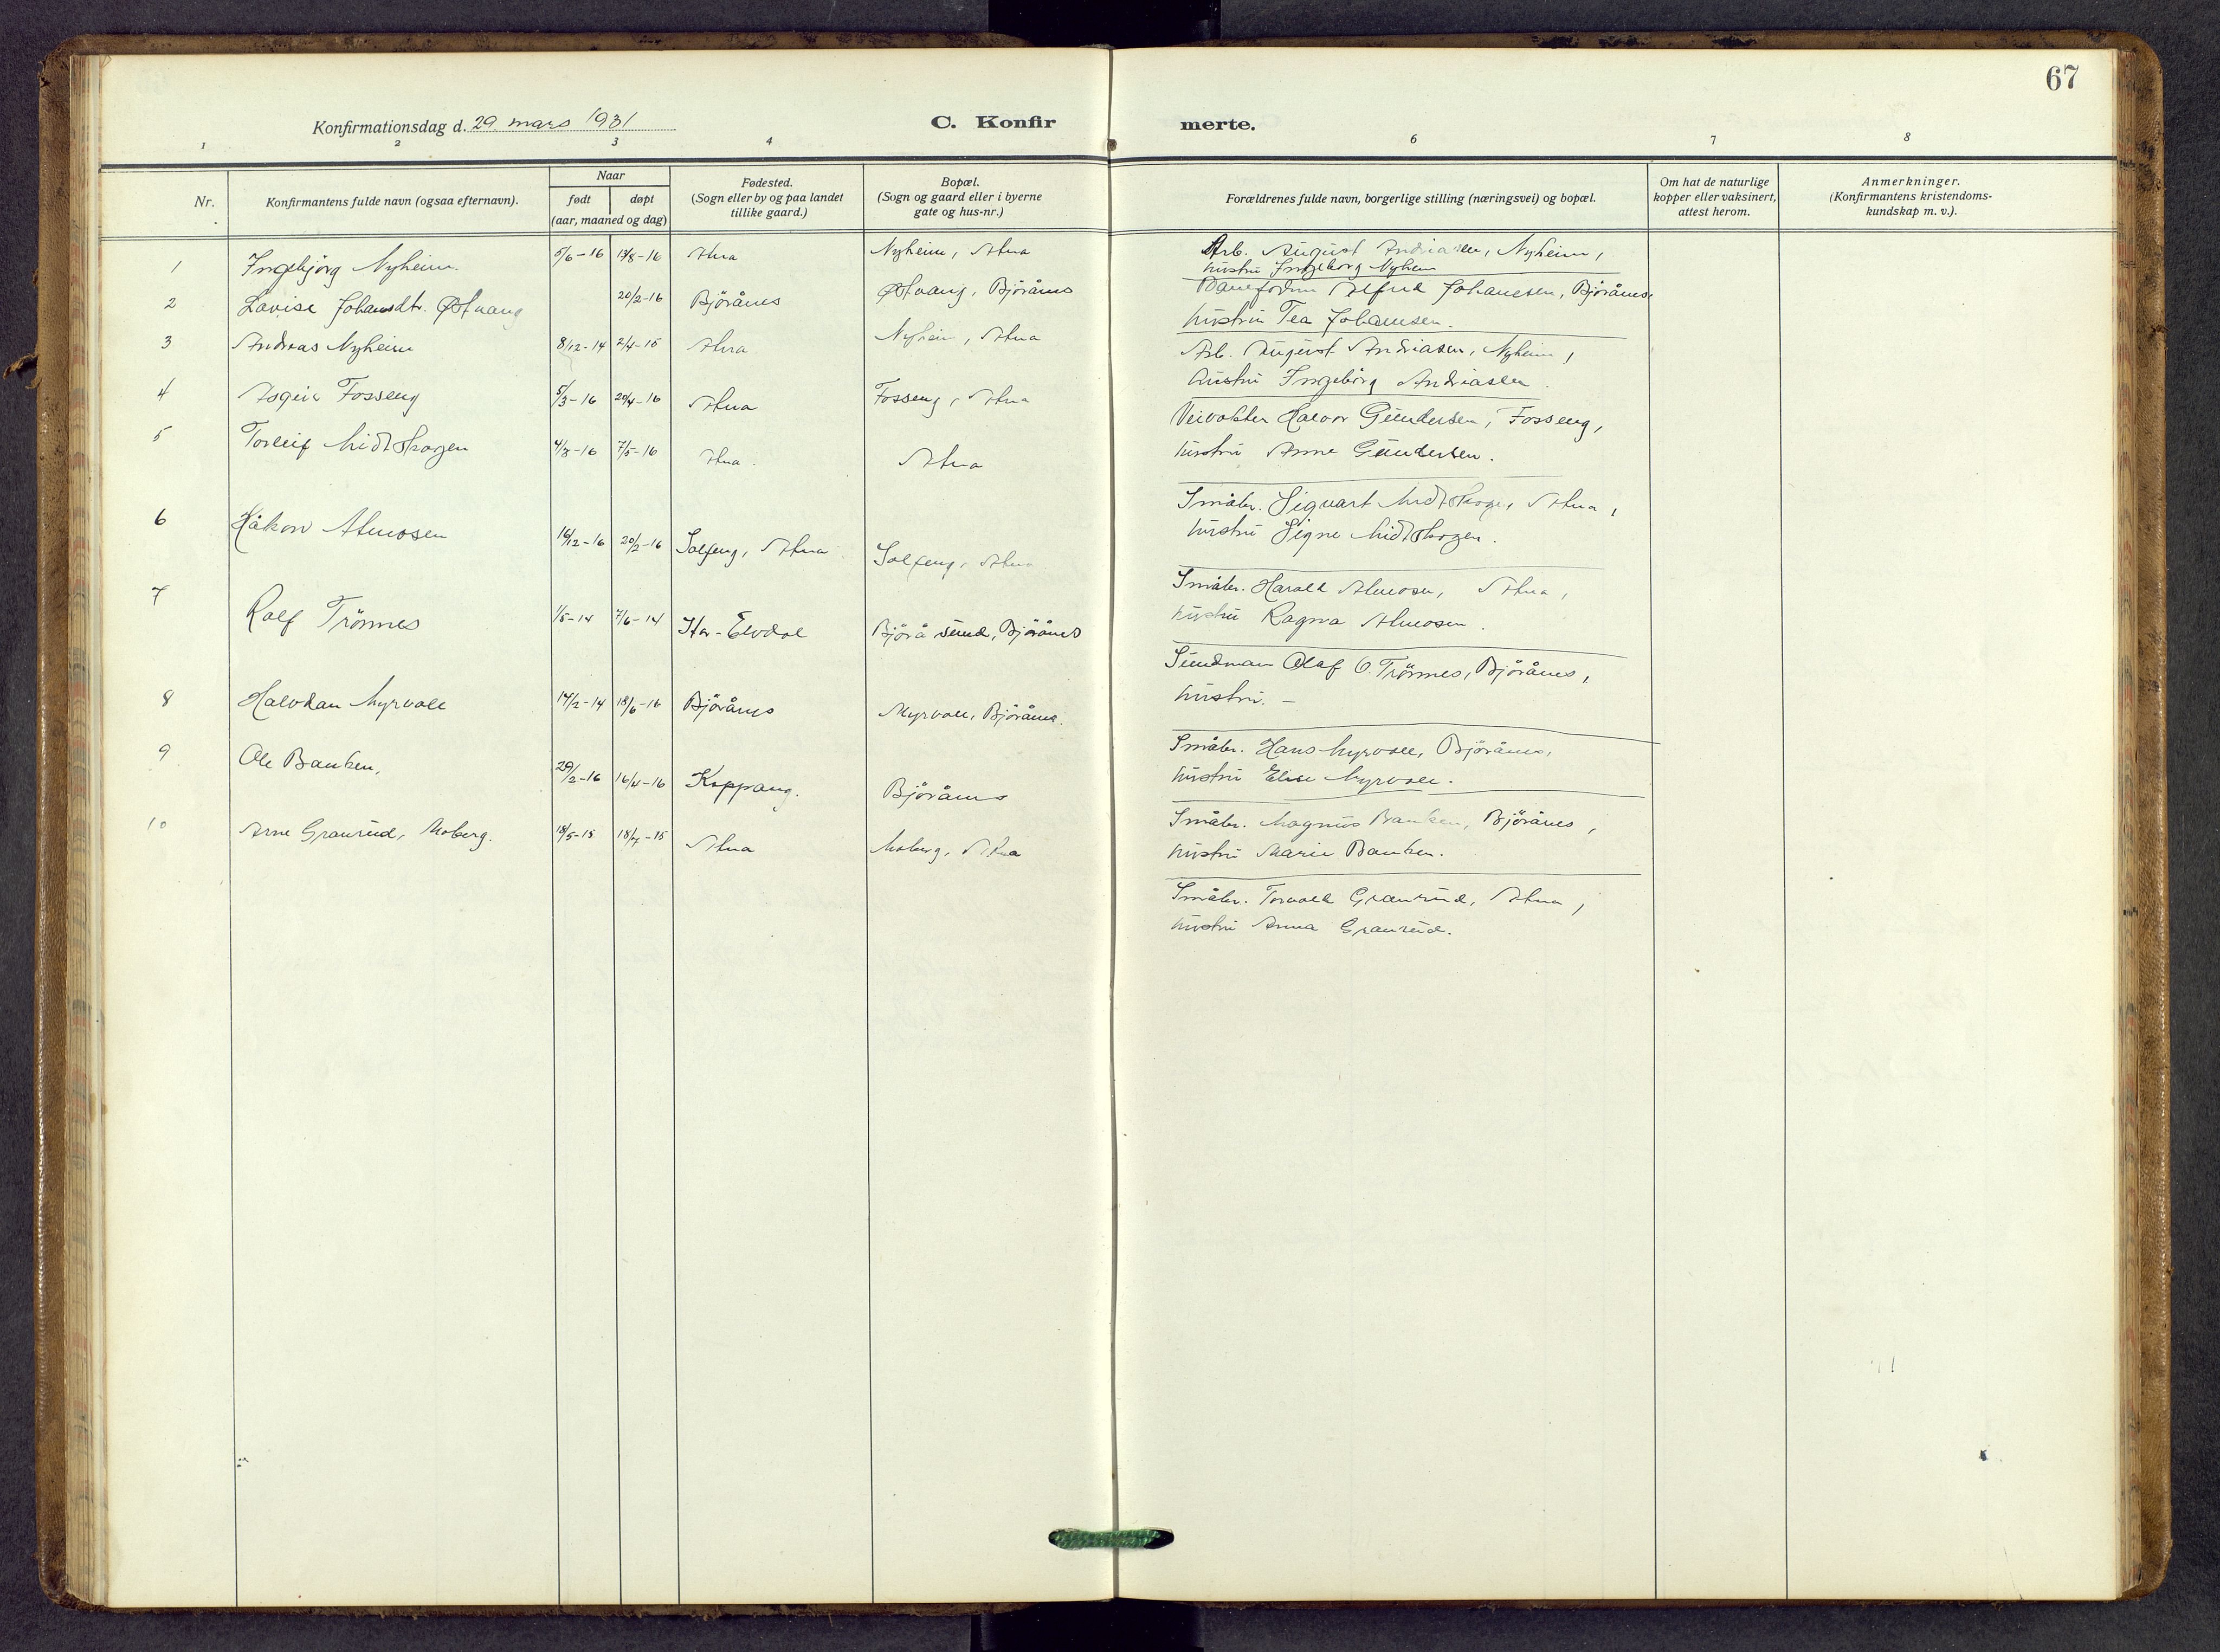 67
Konfirmationsdag d. 29 mars 1931
C. Konfir
merte.
1 2 3 4 6 7 8
Nr.
Konfirmantens fulde navn (ogsaa efternavn).
Naar
født døpt
(aar, maaned og dag)
Fødested.
(Sogn eller by og paa landet
tillike gaard.)
Bopæl.
(Sogn og gaard eller i byerne
gate og hus-nr.)
Forældrenes fulde navn, borgerlige stilling (næringsvei) og bopæl.
Om hat de naturlige
kopper eller vaksinert,
attest herom.
Anmerkninger.
(Konfirmantens kristendoms-
kundskap m. v.).
1 Ingebjörg Nyheim. 5/6-16 Atna Nyheim, Atna
Arb. August Andreasen, Nyheim,
hustru Ingeborg Nyheim
2 Lovise Johansdtr. Østvang 20/2-16 Björånes Østvang, Björånes
Alfred Johansen, Björånes.
hustru Tea Johansen.
3 Andreas Nyheim 8/12-14 2/4-15 Atna Nyheim, Atna
Arb. August Andreasen, Nyheim,
hustru Ingeborg Andreasen.
4 Asgeir Fosseng 5/3-16 20/4-16 Atna Fosseng, Atna
Veivokter Halvor Gundersen, Fosseng,
hustru Anne Gundersen.
5 Torleif Midtskogen 4/3-16 7/5-16 Atna. Atna
Småbr. Sigvart Midtskogen, Atna,
hustru Signe Midtskogen.
6 Håkon Atneosen 16/12-16 20/2-16 Solfeng, Atna Solfeng, Atna
Småbr. Harald Atneosen, Atna,
hustru Ragna Atneosen.
7 Rolf Trönnes 1/5-14 7/6-14 Stor-Elvdal Björåsund, Björånes
Sundman Olaf O. Trönnes, Björånes,
hustru. –
8 Halvdan Myrvoll 14/2-14 18/6-16 Björånes Myrvoll, Björånes.
Småbr. Hans Myrvoll, Björånes,
hustru Elise Myrvoll.
9 Ole Banken, 29/2-16 16/4-16 Koppang. Björånes
Småbr. Magnus Banken, Björånes,
hustru Marie Banken.
10 Arne Granrud, Moberg. 18/5-15 18/7-15 Atna Moberg, Atna
Småbr. Torvald Granrud, Atna,
hustru Anna Granrud.